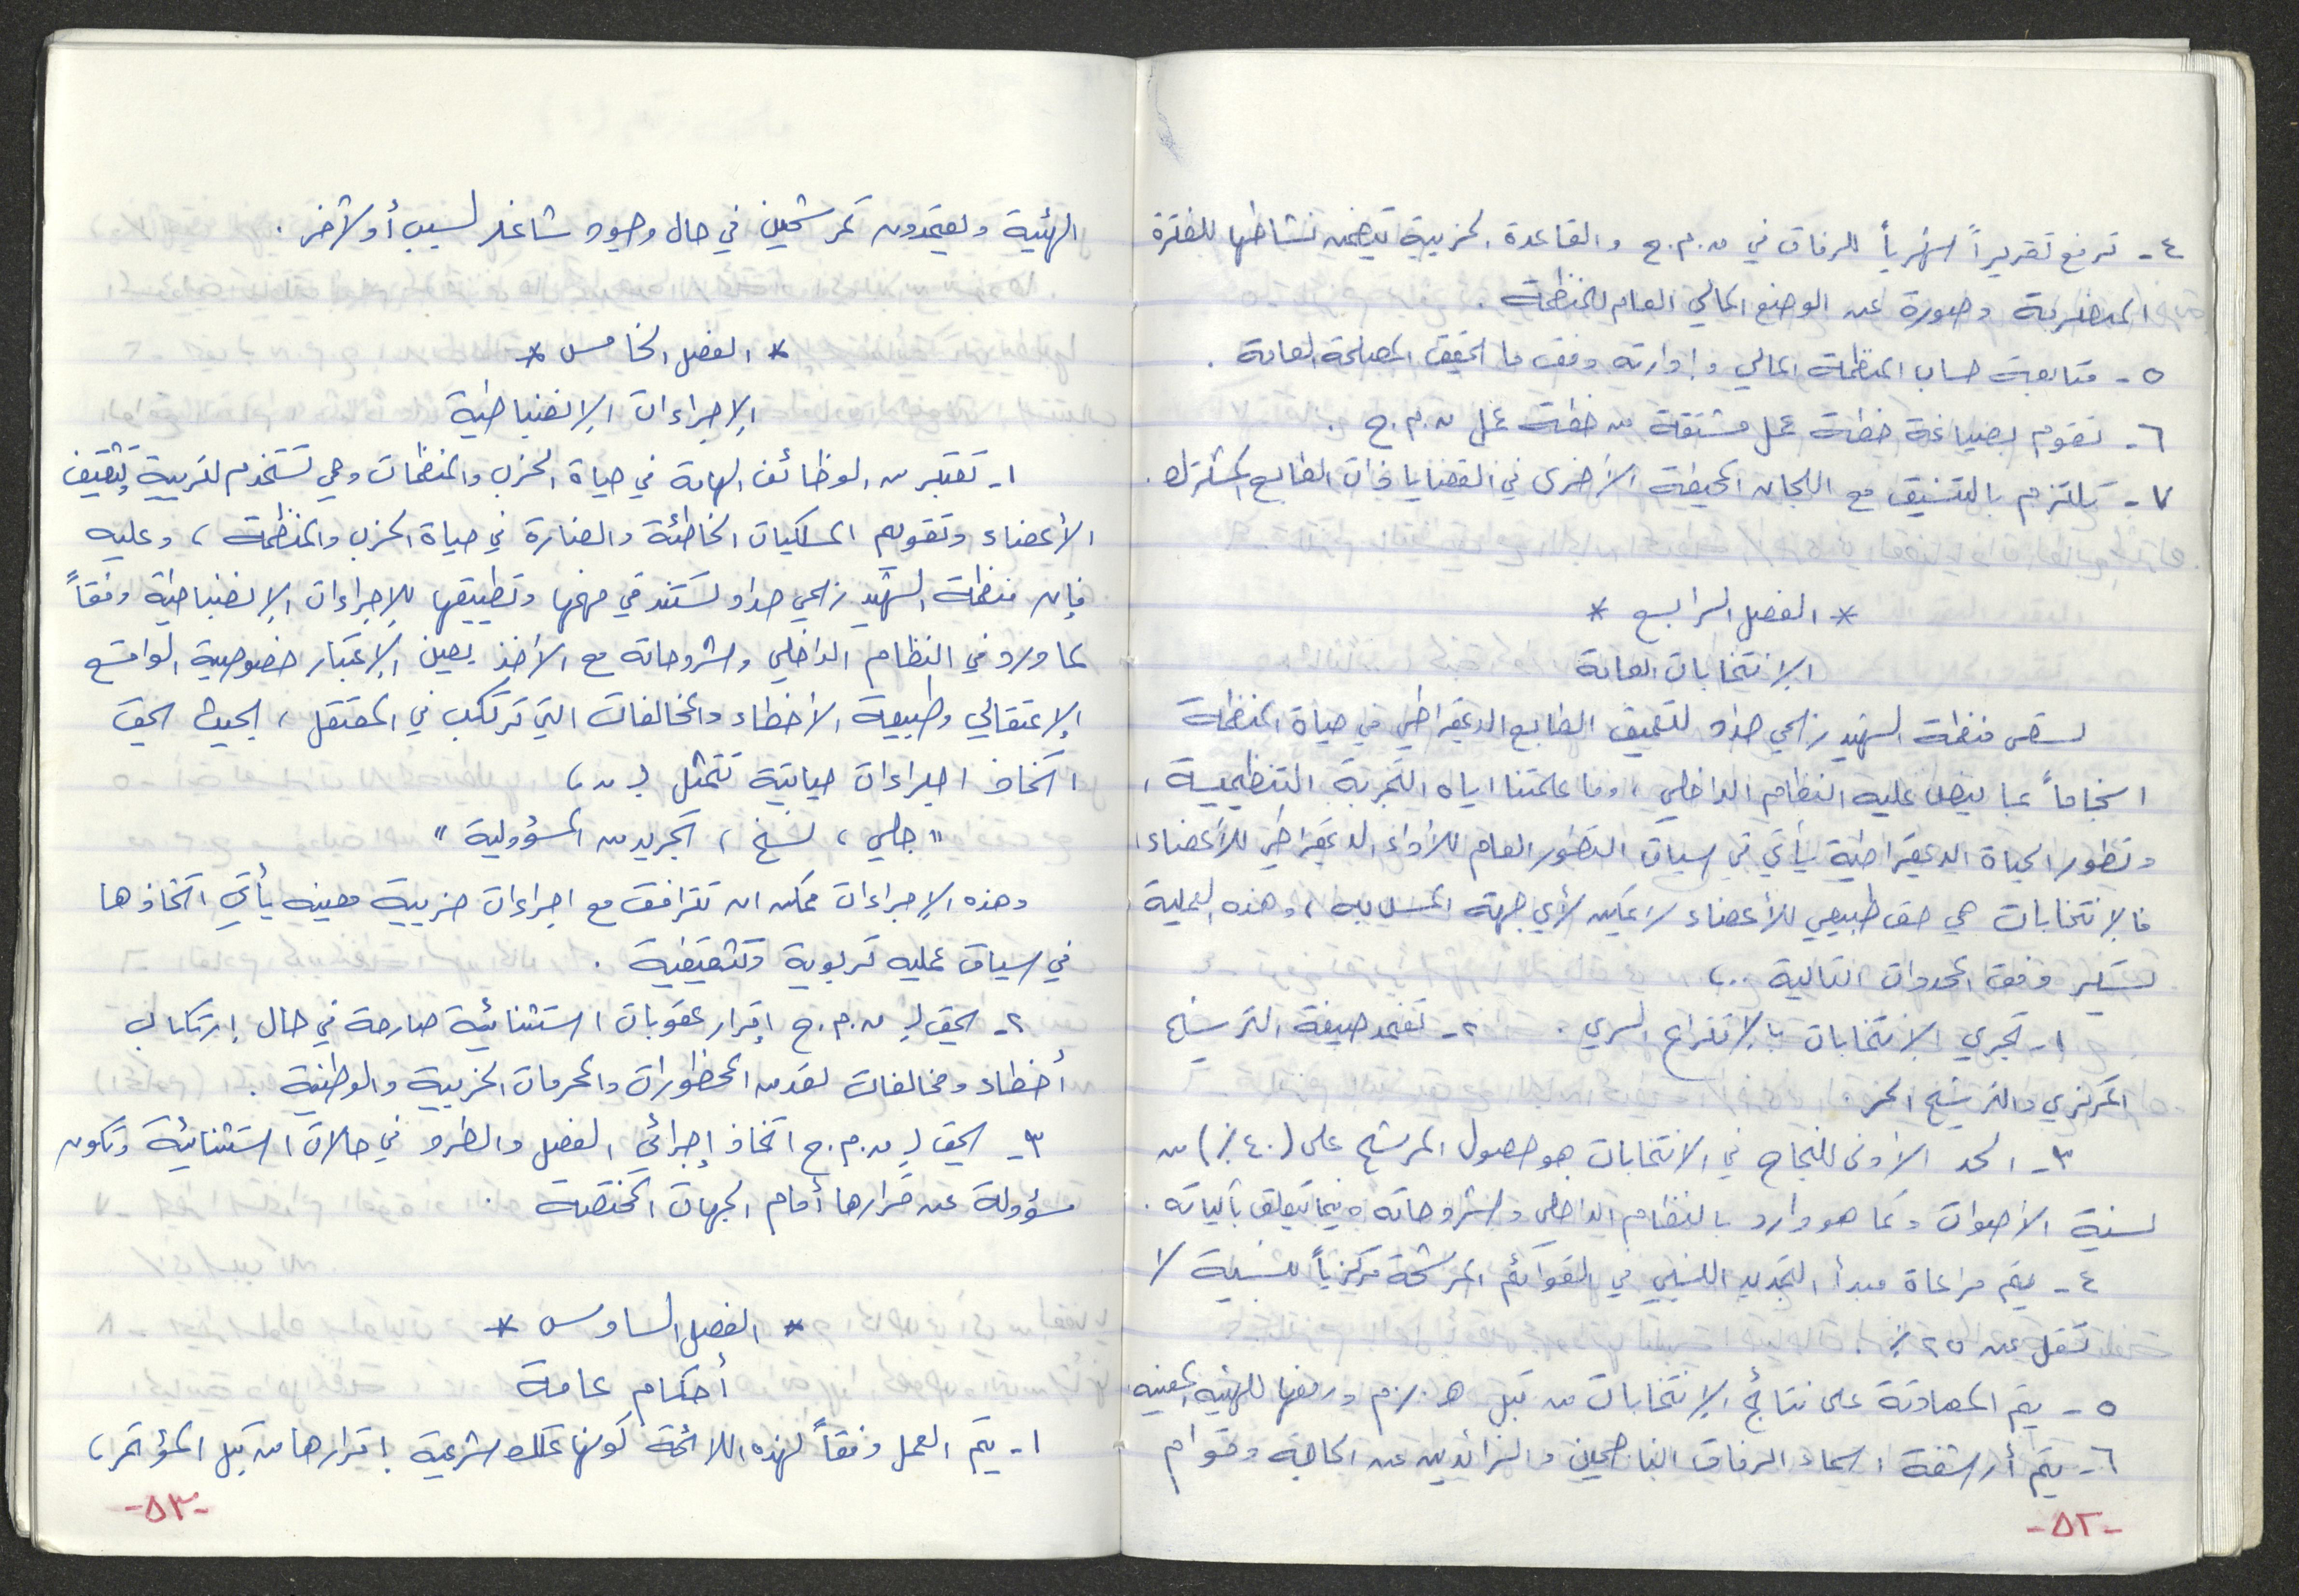 ٤- ترفع تقريراً شهرياً للرفاق في م.م.ح والقاعدة الحزبية يتضمن نشاطها للفترة
المنصرمة وصورة عن الوضع المالي العام للمنظمة .
٥- متابعة حساب المنظمة المالي وإدارته وفق ما تحقق المصلحة العامة .
٦- تقوم بصياغة خطة عمل مشتقة من خطة عمل م.م.ح .
٧- تلتزم بالتنسيق مع اللجان الحيطة الأخرى في القضايا ذات الطابع المشترك .
* الفصل الرابع *
الإنتخابات العامة
تسعى منظمة الشهيد زاهي حداد لتعميق الطابع الديمقراطي في حياة المنظمة
انسجاماً عما ينص عليه النظام الداخلي ، وما علمتنا اياه التجربة التنظيمية ،
وتطور الحياة الديمقراطية يأتي في سياق التطور العام للأداء الديمقراطي للأعضاء ،
فالإنتخابات هي حق طبيعي للأعضاء لا يمكن لأي جهة المس به ، وهذه العملية
تسير وفق المحددات التالية ..،
١- تجري الإنتخابات بالإقتراع السري . ٢- تعتمد صيغة الترشيح
المركزي والترشيح الحر .
٣- الحد الأدنى للنجاح في الإنتخابات هو حصول المرشح على (٤٠٪) من
نسبة الأصوات وكما هو وارد بالنظام الداخلي وشروحاته فيما يتعلق بآلياته .
٤- يتم مراعاة مبدأ التجديد النسبي في القوائم المرشحة مركزياً بنسبة لا
تقل عن ٢٥٪ .
٥- يتم المصادقة على نتائج الإنتخابات من قبل ورفعها للهيئة المعنية
٦- يتم أرشفة اسماء الرفاق الناجحين والزائدين عن الحاجة وقوام
-٥٢-
الهيئة ويعتمدون كمرشحين في حال وجود شاغر لسبب أو لآخر .
* الفصل الخامس *
الإجراءات الإنضباطية
١- تعتبر من الوظائف الهامة في حياة الحزب والمنظمات وهي تستخدم لتربية وتثقيف
الأعضاء وتقويم المسلكيات الخاطئة والضارة في حياة الحزب والمنظمة ، وعليه
فإن منظمة الشهيد زاهي حداد تستند في فهمها وتطبيقها للإجراءات الإنضباطية وفقاً
لما ورد في النظام الداخلي وشروحاته مع الأخذ بعين الإعتبار خصوصية الواقع
الإعتقالي وطبيعة الأخطاء والمخالفات التي ترتكب في المعتقل ، بحيث يحق
اتخاذ اجراءات حياتية تتمثل بـ ،
" جلي ، نسخ ، تجريد من المسؤولية "
وهذه الإجراءات ممكن ان تترافق مع اجراءات حزبية معينه يأتي اتخاذها
في سياق عمليه تربوية وتثقيفية .
٢- يحق لـ م.م.ح إقرار عقوبات استثنائية صارمة في حال إرتكاب
أخطاء ومخالفات تعد من المحظورات والمحرمات الحزبية والوطنية .
٣- يحق لـ م.م.ح اتخاذ إجرائي الفصل والطرد في حالات استثنائية وتكون
مسؤولة عن قرارها أمام الجهات المختصة .
* الفصل السادس *
أحكام عامة
١- يتم العمل وفقاً لهذه اللائحة كونها تملك شرعية إقرارها من قبل المؤتمر ،
-٥٣-